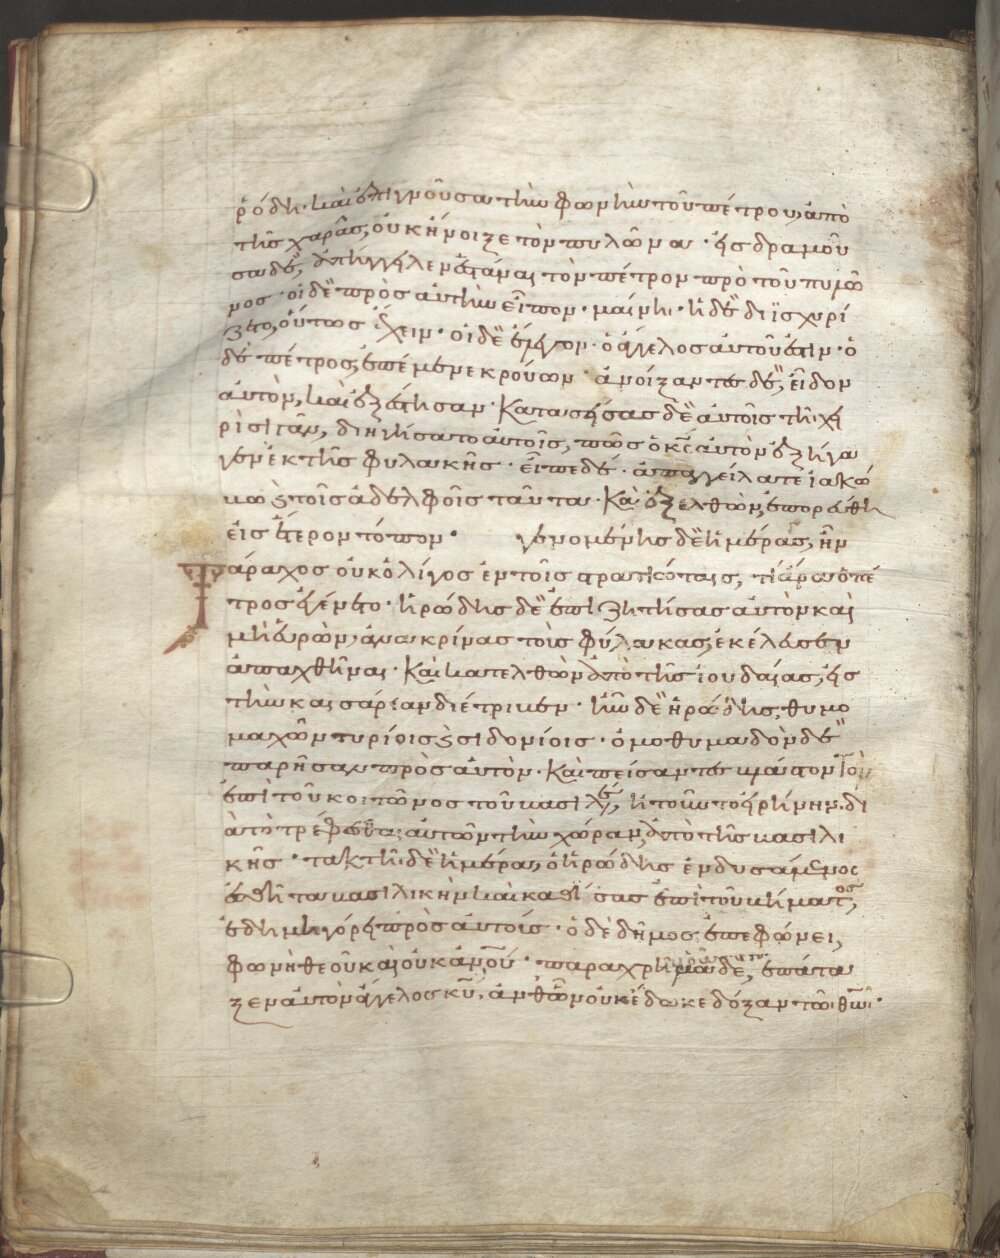 ρόδη· καὶ ἐπιγνοῦσα τὴν φωνὴν τοῦ πέτρου, ἀπὸ
τῆς χαρᾶς, οὐκ ἤνοιξε τὸν πυλῶνα· εἰσδραμοῦ
σα δὲ, ἀπήγγειλεν ἑστάναι τὸν πέτρον πρὸ τοῦ πυλῶ
νος· οἱ δὲ πρὸς αὐτὴν εἶπον· μαίνη· ἡ δὲ διϊσχυρί
ζετο, οὕτως ἔχειν· οἱ δὲ ἔλεγον· ὁ ἄγγελος αὐτοῦ ἐστιν· ὁ
δὲ πέτρος, ἐπέμενε κρούων· ἀνοίξαντες δὲ, εἶδον
αὐτὸν, καὶ ἐξέστησαν· Κατασείσας δὲ αὐτοῖς τῇ χει
ρὶ σιγᾶν, διηγήσατο αὐτοῖς, πῶς ὁ κς αὐτὸν ἐξήγα
γεν ἐκ τῆς φυλακῆς· εἶπε δέ· ἀπαγγείλατε ἰακώ
βω καὶ τοῖς ἀδελφοῖς ταῦτα· Καὶ ἐξελθὼν, ἐπορεύθη
εἰς ἕτερον τόπον· γενομένης δὲ ἡμέρας, ἦν
Τάραχος οὐκ ὀλίγος ἐν τοῖς στρατιώταις, τί ἄρα ὁ πέ
τρος ἐγένετο· ἡρώδης δὲ ἐπιζητήσας αὐτὸν καὶ
μὴ εὑρὼν, ἀνακρίνας τοὺς φύλακας, ἐκέλευσεν
ἀπαχθῆναι· Καὶ κατελθὼν ἀπὸ τῆς ἰουδαίας, εἰς
τὴν καισάρειαν διέτριβεν· ἦν δὲ ἡρώδης, θυμο
μαχῶν τυρίοις καὶ σιδονίοις· ὁμοθυμαδὸν δὲ
παρῆσαν πρὸς αὐτὸν· Καὶ πείσαντες βλάστον τὸν
ἐπὶ τοῦ κοιτῶνος τοῦ βασιλέως, ἠτοῦντο εἰρήνην· δι
ὰ τὸ τρέφεσθαι αὐτῶν τὴν χώραν, ἀπὸ τῆς βασιλι
κῆς· τακτῇ δὲ ἡμέρα, ὁ ἡρώδης ἐνδυσάμενος
ἐσθῆτα βασιλικὴν καὶ καθίσας ἐπὶ τοῦ βήματος,
ἐδημηγόρει πρὸς αὐτούς· ὁ δὲ δῆμος, ἐπεφώνει,
φωνὴ θεοῦ καὶ οὐκ ἀνου· παραχρῆμα δὲ, ἐπάτα
ξεν αὐτὸν ἄγγελος κυ, ἀνθ ὧν οὐκ ἔδωκε δόξαν τῶ θω·